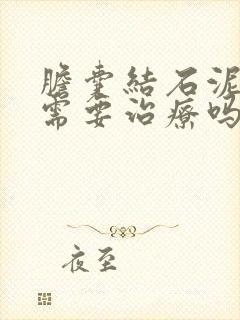 膽囊結石泥
需要治療嗎
夜至